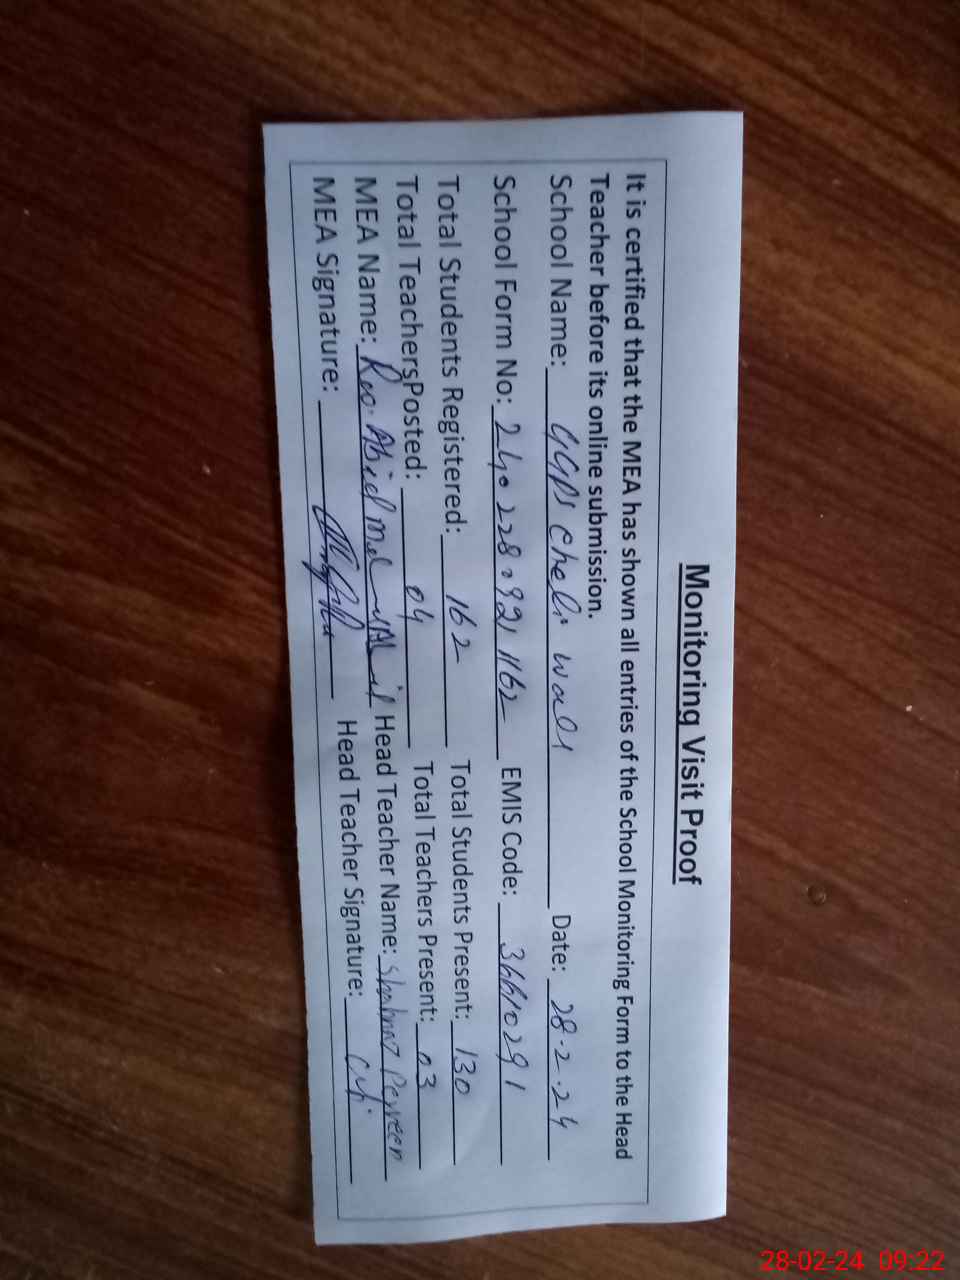 Monitoring Visit Proof
It is certified that the MEA has shown all entries of the School Monitoring Form to the Head
Teacher before its online submission.
School Name: GGPS Cheli wali Date: 28-2-24
School Form No: EMIS Code: 36610291
Total Students Registered: 162 Total Students Present: 130
Total Teachers Posted: 04 Total Teachers Present: 03
MEA Name: Rao Abid Head Teacher Name: Shahnaz Perveen
MEA Signature: Head Teacher Signature:
28-02-24 09:22